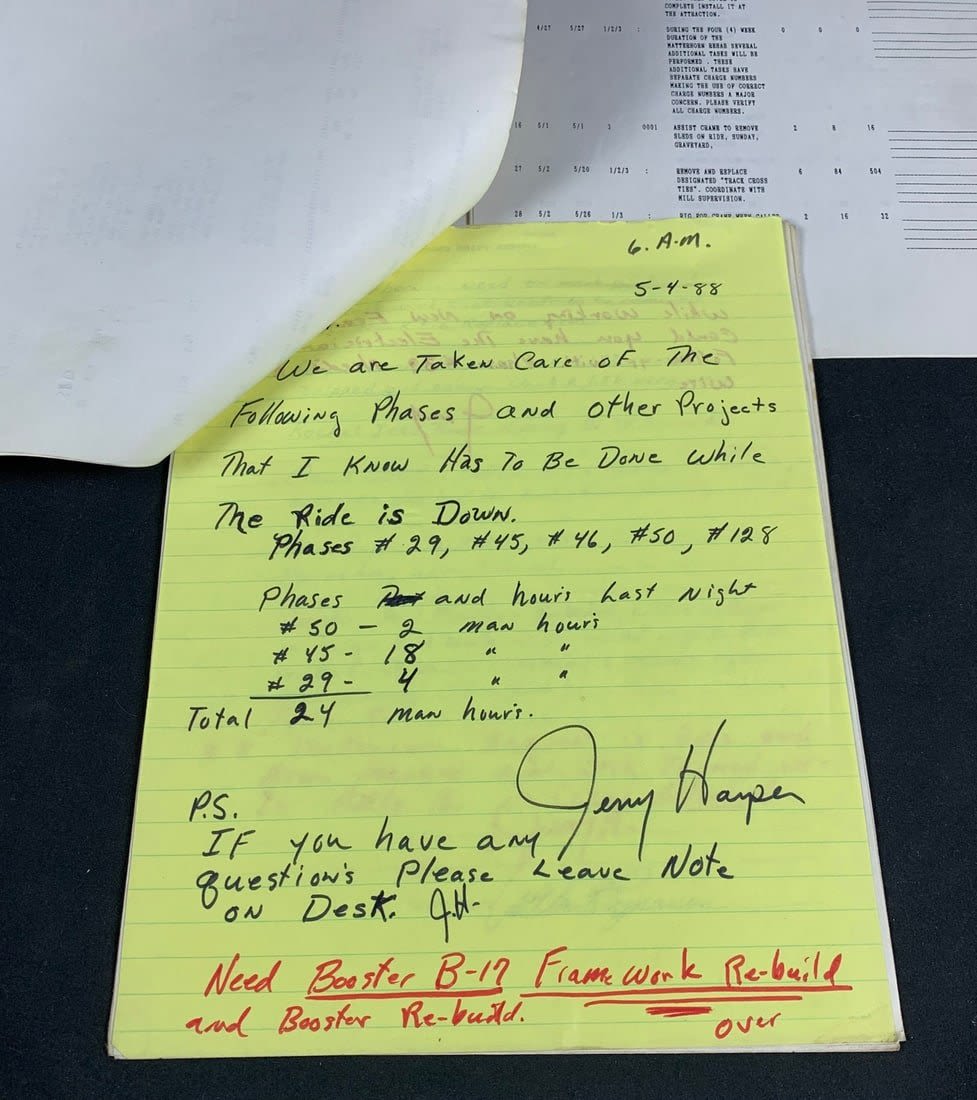 COMPLETE INSTALL IT AT
THE ATTRACTION.
4/27 5/27 1/2/3 : DURING THE FOUR (4) WEEK 0 0 0
DURATION OF THE
MATTERHORN REHAB SEVERAL
ADDITIONAL TASKS WILL BE
PERFORMED . THESE
ADDITIONAL TASKS HAVE
SEPARATE CHARGE NUMBERS
MAKING THE USE OF CORRECT
CHARGE NUMBERS A MAJOR
CONCERN. PLEASE VERIFY
ALL CHARGE NUMBERS.
16 5/1 5/1 3 0001 ASSIST CRANE TO REMOVE 2 8 16
SLEDS ON RIDE, SUNDAY,
GRAVEYARD,
27 5/2 5/20 1/2/3 : REMOVE AND REPLACE 6 84 504
DESIGNATED "TRACK CROSS
TIES". COORDINATE WITH
MILL SUPERVISION.
28 5/2 5/26 1/3 : RIG FOR CRANE WHEN CALLED 2 16 32
6. A.M.
5-4-88
We are Taken Care of The
Following Phases and other Projects
That I Know Has To Be Done While
The Ride is Down.
Phases # 29, #45, # 46, #50, #128
Phases and hours Last Night
# 50 - 2 man hours
# 45 - 18 " "
# 29 - 4 " "
Total 24 man hour's.
Jerry Harper
P.S.
IF you have any
question's Please Leave Note
on Desk. J.H-
Need Booster B-17 Frame work Re-build
and Booster Re-build.
over